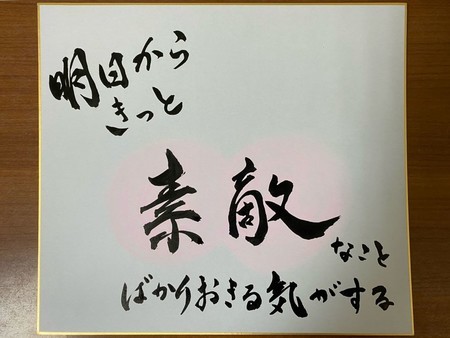 明日から
きっと
素敵
なこと
ばかりおきる気がする